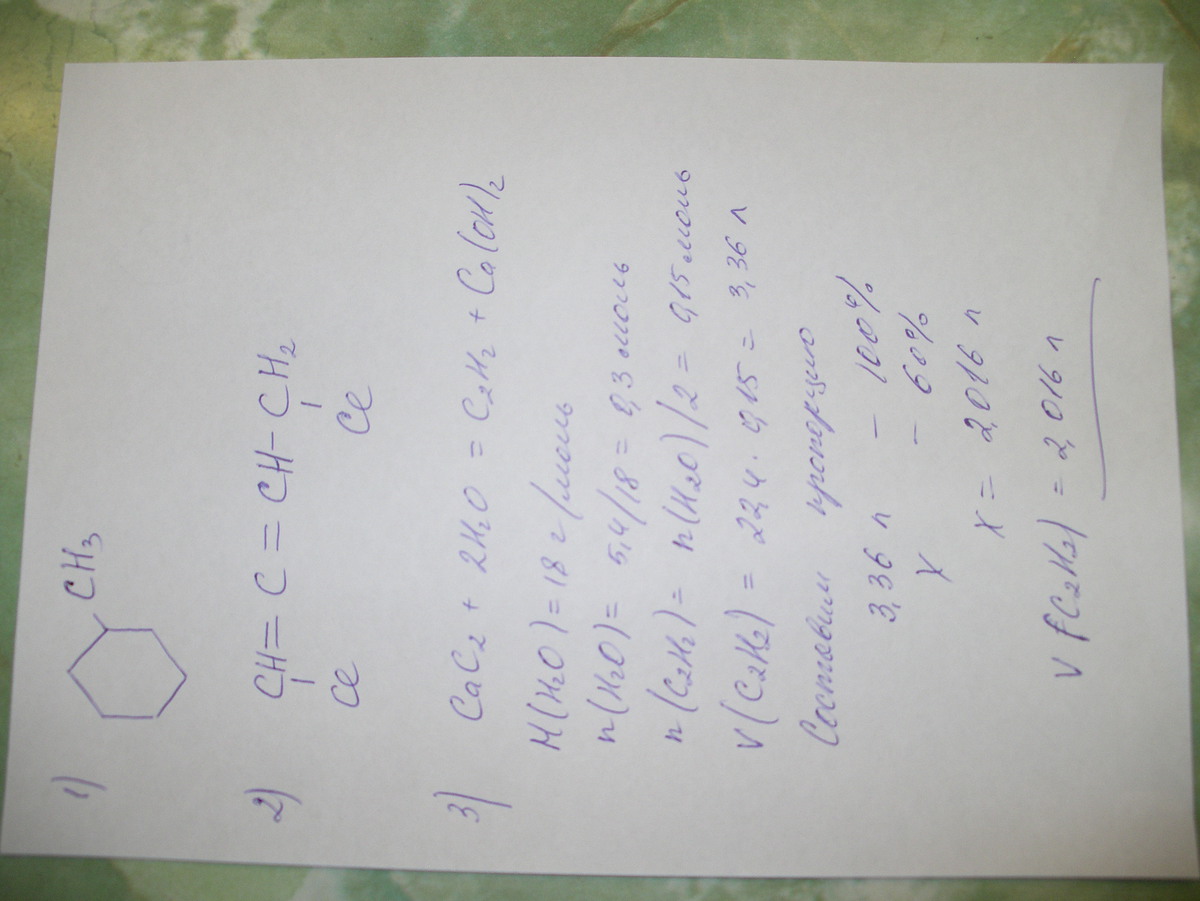 1) CH3
2) CH = C = CH - CH2
Cl Cl
3) CaC2 + 2H2O = C2H2 + Ca(OH)2
M(H2O) = 18 г/моль
n(H2O) = 5,4/18 = 0,3 моль
n(C2H2) = n(H2O)/2 = 0,15 моль
V(C2H2) = 22,4 · 0,15 = 3,36 л
Составим пропорцию
3,36 л - 100%
X - 60%
X = 2,016 л
V(C2H2) = 2,016 л